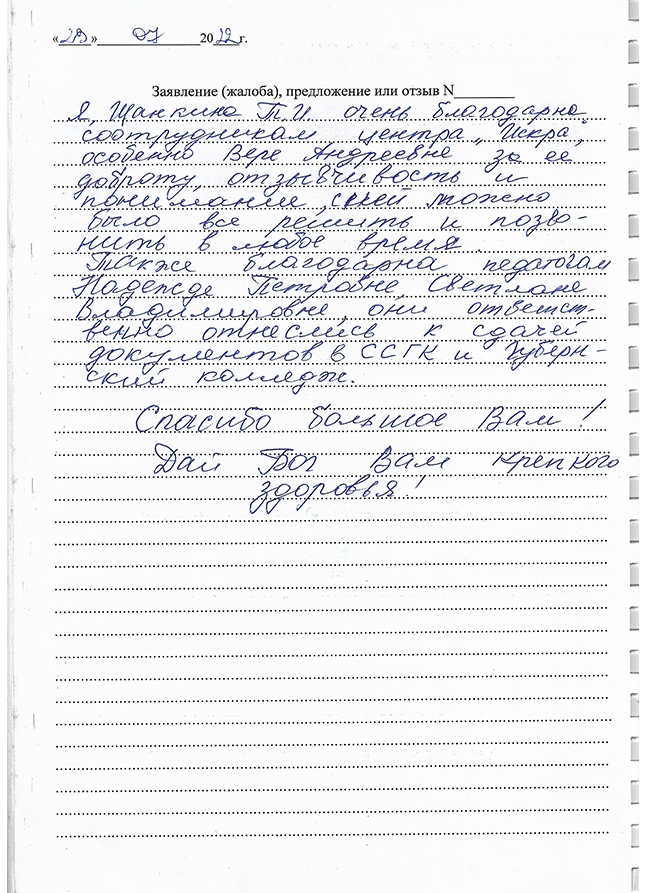 « » 07 2022 г.
Заявление (жалоба), предложение или отзыв N
Я, Щанкина Т.И. очень благодарна
сотрудникам центра „Искра",
особенно Вере Андреевне за ее
доброту, отзывчивость и
понимание, с ней можно
было все решить и позво-
нить в любое время.
Также благодарна педагогам
Надежде Петровне, Светлане
Владимировне, они ответст-
венно отнеслись к сдачей
документов в ССГК и Губерн-
ский колледж.
Спасибо большое Вам!
Дай Бог Вам крепкого
здоровья!